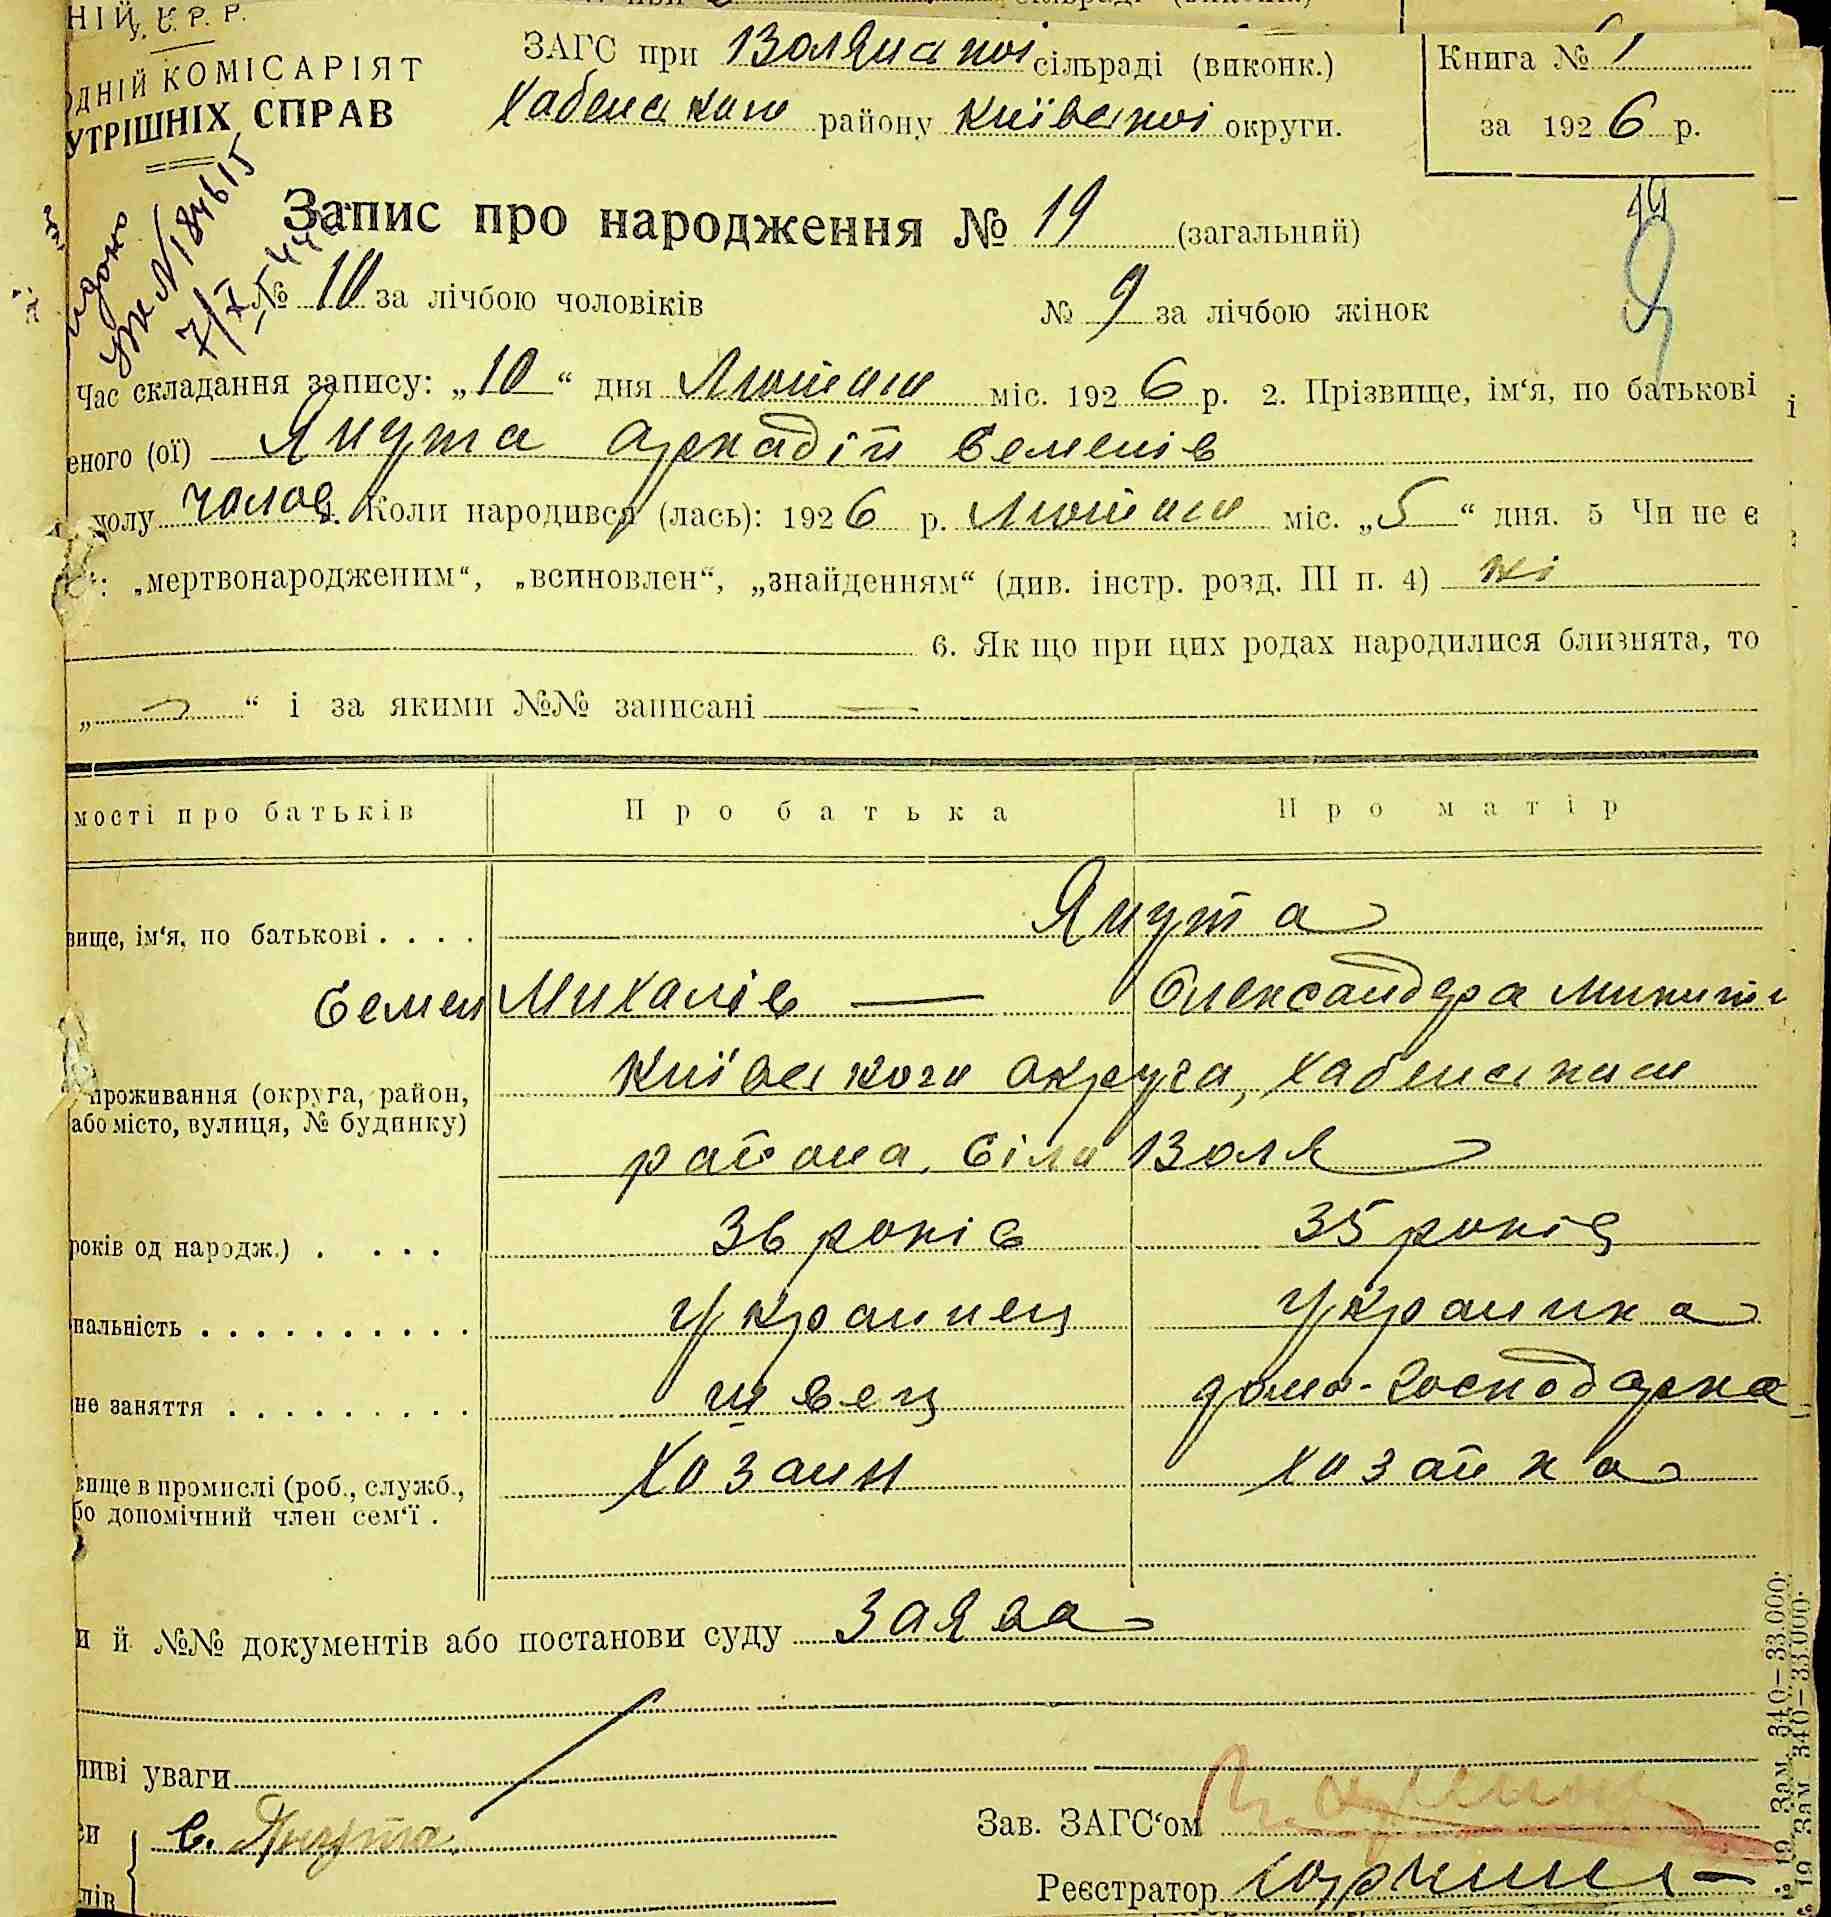 НІЙ У. С. Р. Р.
ОДНІЙ КОМІСАРІЯТ
УТРІШНІХ СПРАВ
ЗАГС при Волянскої сільраді (виконк.)
Хабенского району Київської округи.
Книга № 1
за 1926 р.
№ 184615
Запис про народження № 19 (загальний)
№ 10 за лічбою чоловіків № 9 за лічбою жінок
Час складання запису: „10“ дня Лютого міс. 1926 р. 2. Прізвище, ім‘я, по батькові
еного (ої) Янута Аркадій Семенів
полу чолов. Коли народився (лась): 1926 р. Лютого міс. „5“ дня. 5 Чи не є
: „мертвонародженим“, „всиновлен“, „знайденням“ (див. інстр. розд. III п. 4) ні
6. Як що при цих родах народилися близнята, то
„ — “ і за якими №№ записані —
мості про батьків Про батька Про матір
вище, ім‘я, по батькові . . . . Янута
Семен Михалів — Олександра
проживання (округа, район,
або місто, вулиця, № будинку)
Київського округа, Хабенского
района, Село Воля
років од народж.) . . . . 36 років 35 років
нальність . . . . . . . . . . Украинец Украинка
не заняття . . . . . . . . . швец домо-господарка
вище в промислі (роб., служб.,
бо допомічний член сем‘ї .
Хозаин хозайка
и й №№ документів або постанови суду Заява
ливі уваги
С. Янута
Зав. ЗАГС‘ом
Реєстратор
19 Зам. 340—33.000.
19 Зам. 340—33.000.